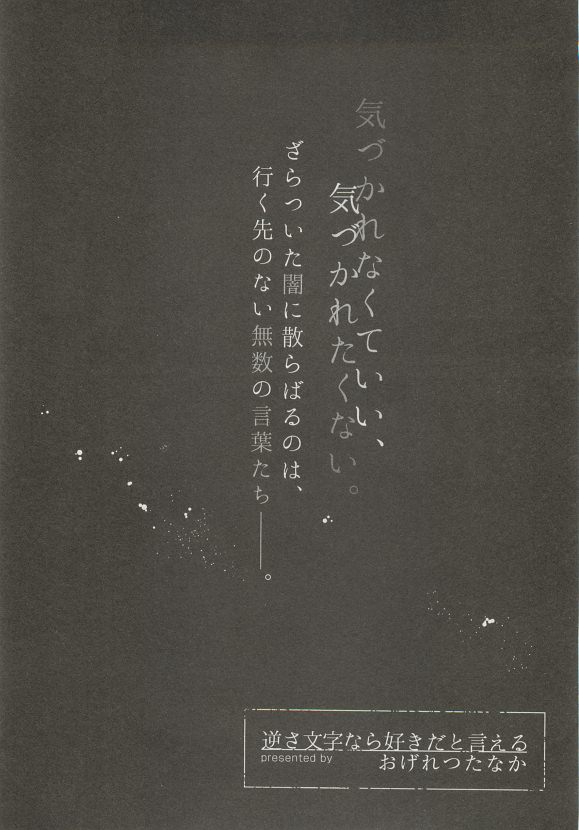 気づかれなくていい、
気づかれたくない。
ざらついた闇に散らばるのは、
行く先のない無数の言葉たち――。
逆さ文字なら好きだと言える
presented by
おげれつたなか